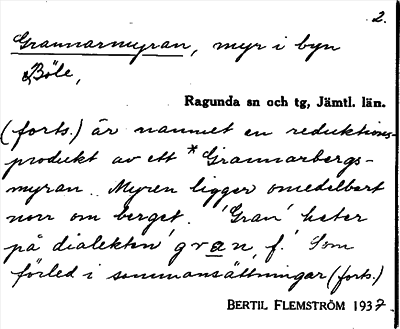 2.
Grannarmyran, myr i byn
Böle,
Ragunda sn och tg, Jämtl. län.
(forts.) är namnet en reduktions-
produkt av ett *Grannarbergs-
myran. Myren ligger omedelbart
norr om berget. 'Gran' heter
på dialekten gran, f. Som
förled i sammansättningar (forts.)
BERTIL FLEMSTRÖM 1937